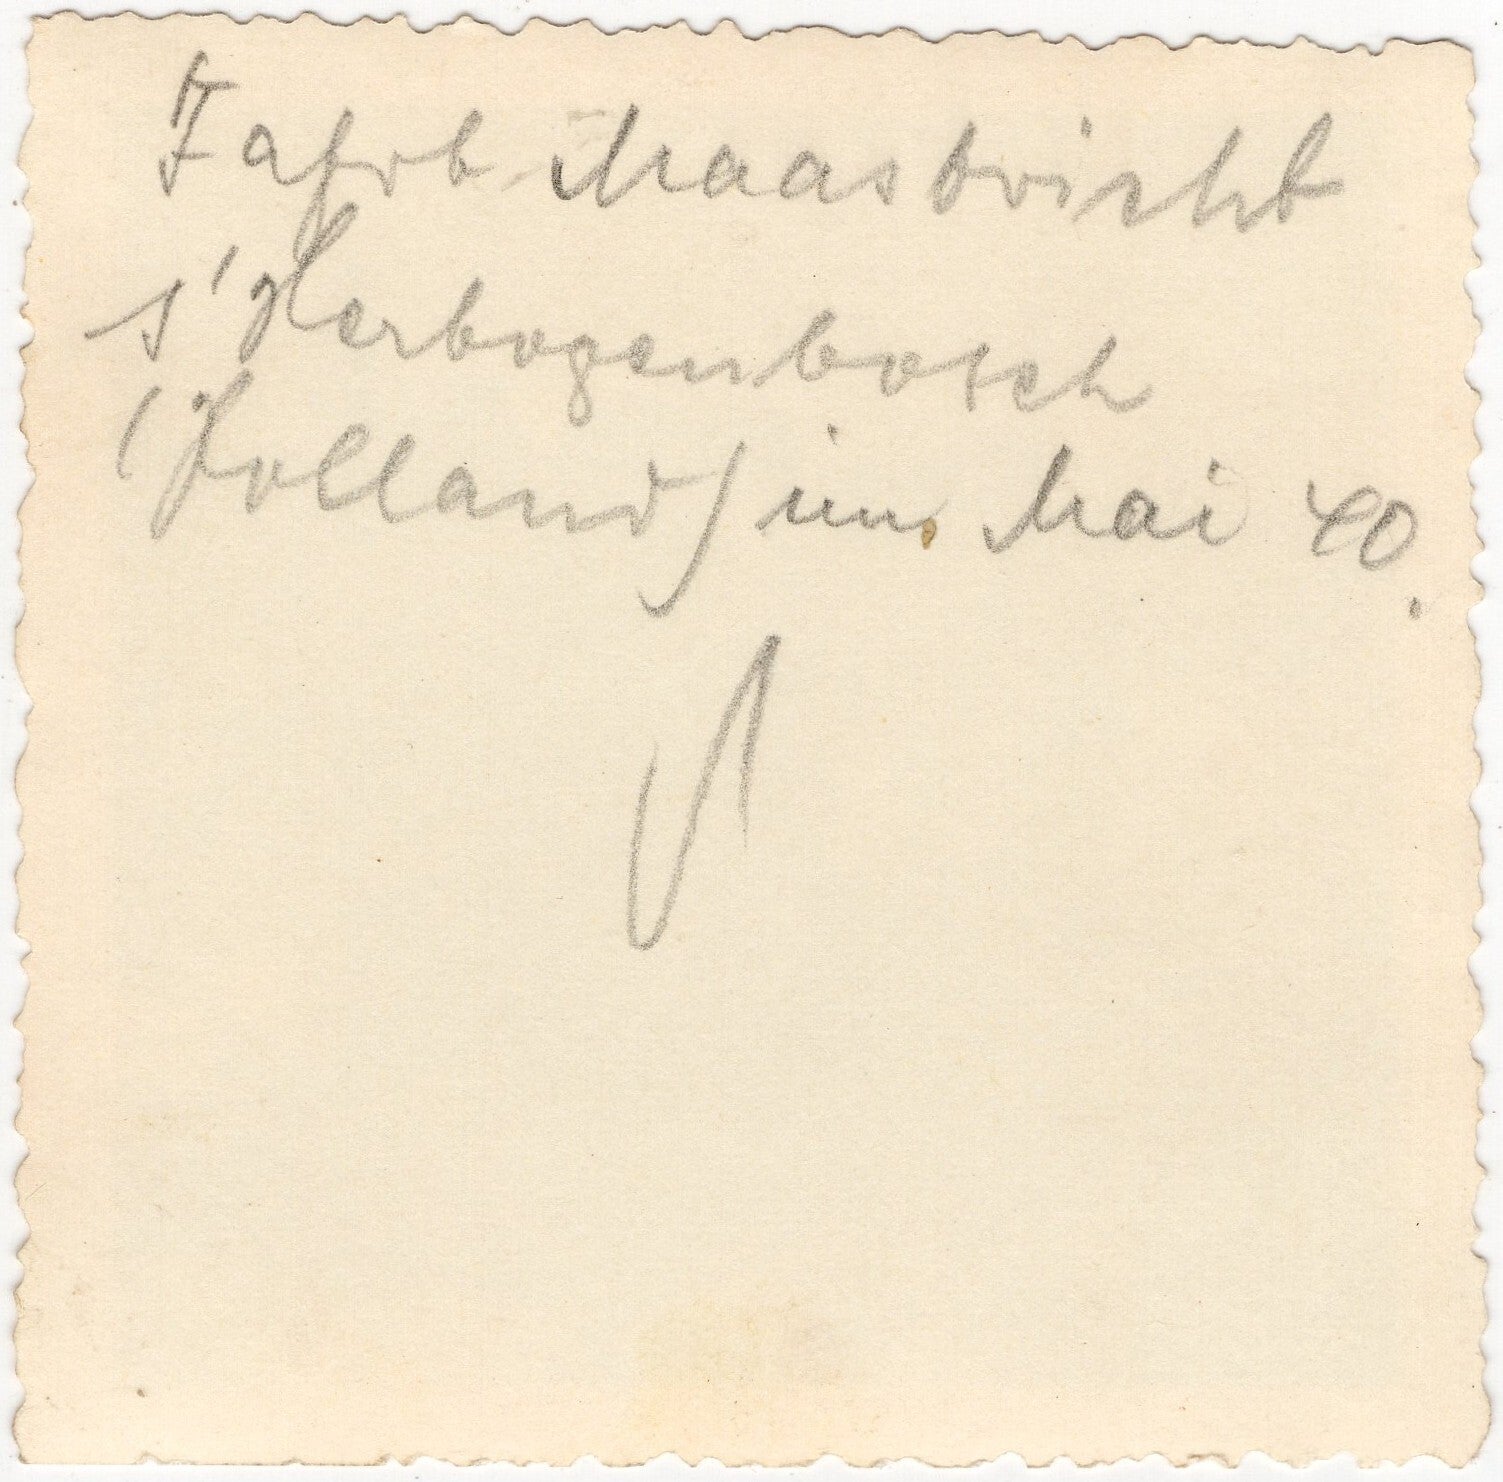 Fahrt Maastricht
s'Herbogenbosch
(Holland) im Mai 40.